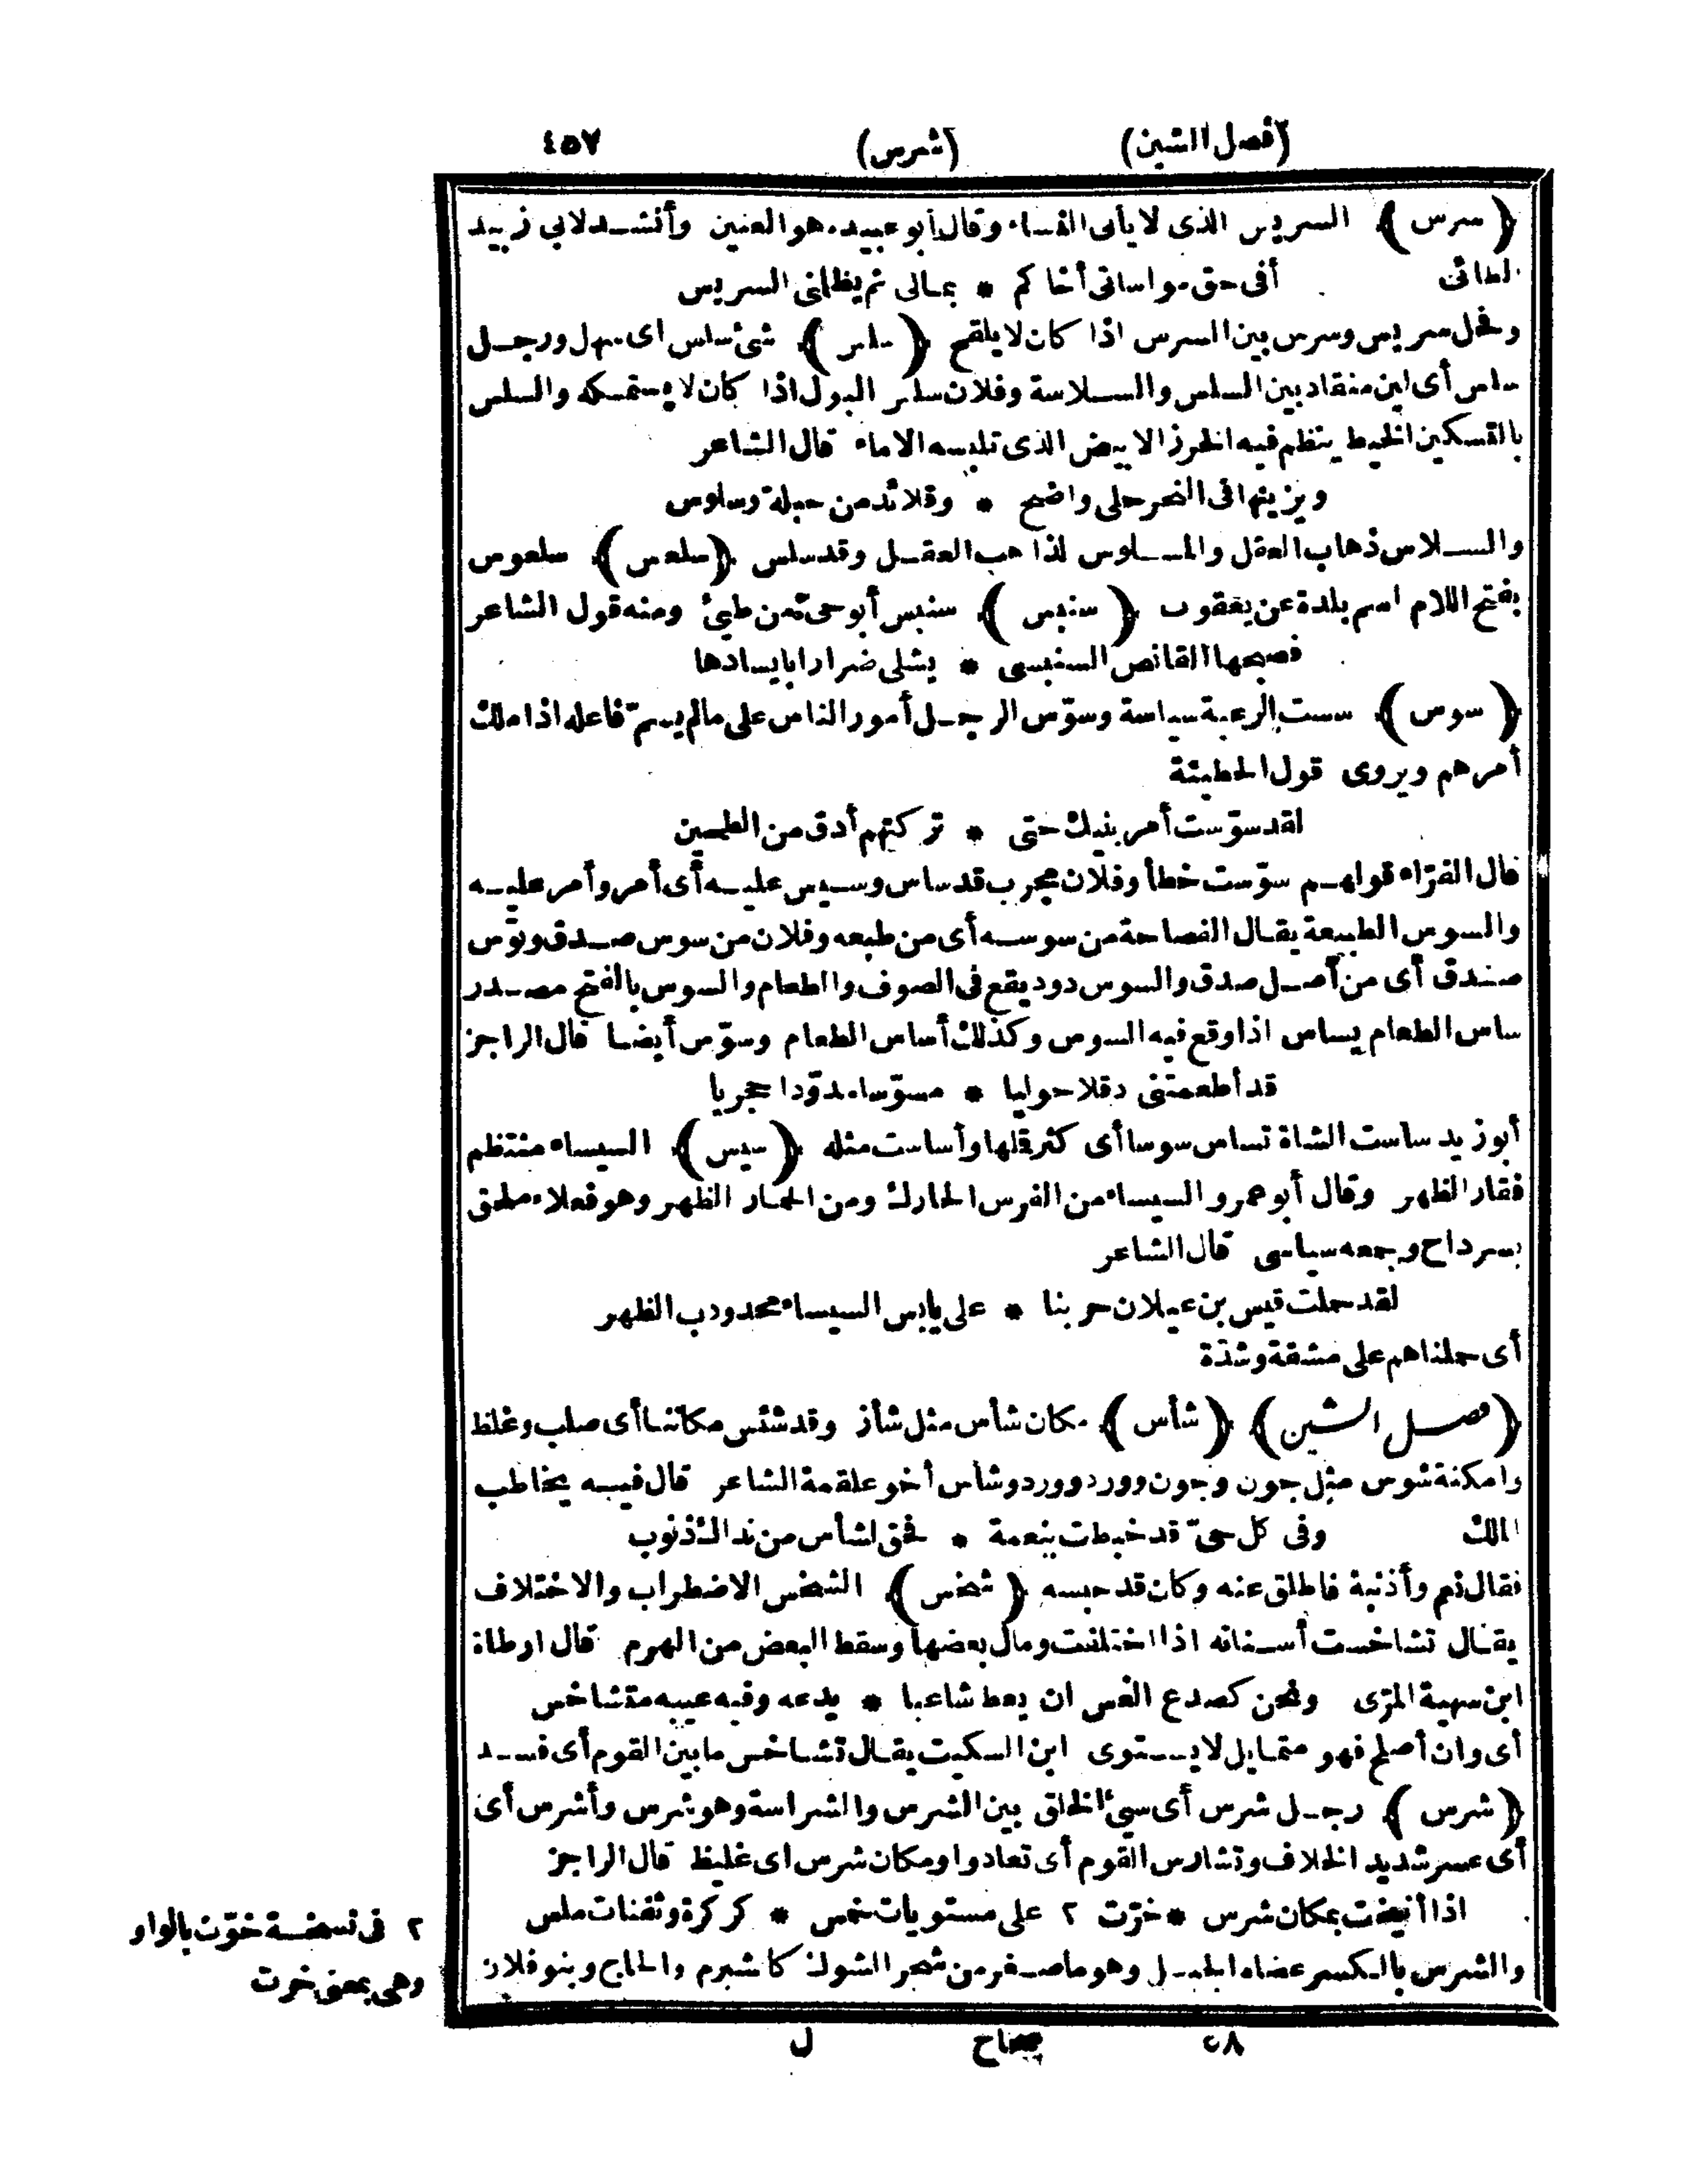 (فصل الشين) (شرس) ٤٥٧
﴿سرس﴾ السريس الذى لا يأتى النساء وقال أبو عبيد هو العنين وأنشد لابى زبيد
الطائى أفى حق مواساتى أخاكم * بمالى ثم يظلمنى السريس
وفحل سريس وسرس بين السرس اذا كان لا يلقح ﴿سلس﴾ شئ سلس اى سهل ورجل
سلس أى لين منقاد بين السلس والسلاسة وفلان سلس البول اذا كان لا يستمسكه والسلس
بالتسكين الخيط ينظم فيه الخرز الابيض الذى تلبسه الاماء قال الشاعر
ويزينها فى النحر حلى واضح * وقلائد من حبلة وسلوس
والسلاس ذهاب العقل والمسلوس الذاهب العقل وقد سلس ﴿سلعس﴾ سلعوس
بفتح اللام اسم بلدة عن يعقوب ﴿سنبس﴾ سنبس أبو حى من طيئ ومنه قول الشاعر
فصبحها القانص السنبسى * يشلى ضرارا بايسادها
﴿سوس﴾ سست الرعية سياسة وسوّس الرجل أمور الناس على مالم يسمّ فاعله اذا ملك
أمرهم ويروى قول الحطيئة
لقد سوّست أمر بنيك حتى * تركتهم أدق من الطحين
قال الفرّاء قولهم سوّست خطأ وفلان مجرب قد ساس وسيس عليه أى أمر وأمر عليه
والسوس الطبيعة يقال الفصاحة من سوسه أى من طبعه وفلان من سوس صدق وتوس
صدق أى من أصل صدق والسوس دود يقع فى الصوف والطعام والسوس بالفتح مصدر
ساس الطعام يساس اذا وقع فيه السوس وكذلك أساس الطعام وسوّس أيضا قال الراجز
قد أطعمتنى دقلا حوليا * مسوّسا مدوّدا حجريا
أبو زيد ساست الشاة تساس سوسا أى كثر قملها وأساست مثله ﴿سيس﴾ السيساء منتظم
فقار الظهر وقال أبو عمرو السيساء من الفرس الحارك ومن الحمار الظهر وهو فعلاء ملحق
بسرداح وجمعه سياسى قال الشاعر
لقد حملت قيس بن عيلان حربنا * على يابس السيساء محدودب الظهر
أى حملناهم على مشقة وشدّة
﴿فصل الشين﴾ ﴿شأس﴾ مكان شأس مثل شأز وقد شئس مكاننا أى صلب وغلظ
وامكنة شوس مثل جون وجون وورد وورد وشأس أخو علقمة الشاعر قال فيه يخاطب
الملك وفى كل حىّ قد خبطت بنعمة * فحق لشأس من نداك ذنوب
فقال نعم وأذنبة فاطلق عنه وكان قد حبسه ﴿شخس﴾ الشخس الاضطراب والاختلاف
يقال تشاخست أسنانه اذا اختلفت ومال بعضها وسقط البعض من الهرم قال ارطاة
ابن سهية المرّى ونحن كصدع العس ان يعط شاعبا * يدعه وفيه عيبه متشاخس
أى وان أصلح فهو متمايل لا يستوى ابن السكيت يقال تشاخس ما بين القوم أى فسد
﴿شرس﴾ رجل شرس أى سيئ الخلق بين الشرس والشراسة وهو شرس وأشرس أى
أى عسر شديد الخلاف وتشارس القوم أى تعادوا ومكان شرس اى غليظ قال الراجز
اذا أنيخت بمكان شرس * خرّت ٢ على مستويات خمس * كركرة وثفنات ملس
والشرس بالكسر عضاه الجبل وهو ما صغر من شجر الشوك كالشبرم والحاج وبنو فلان
٢ فى نسخة خوّت بالواو
وهى بمعنى خرت
٥٨ صحاح ل